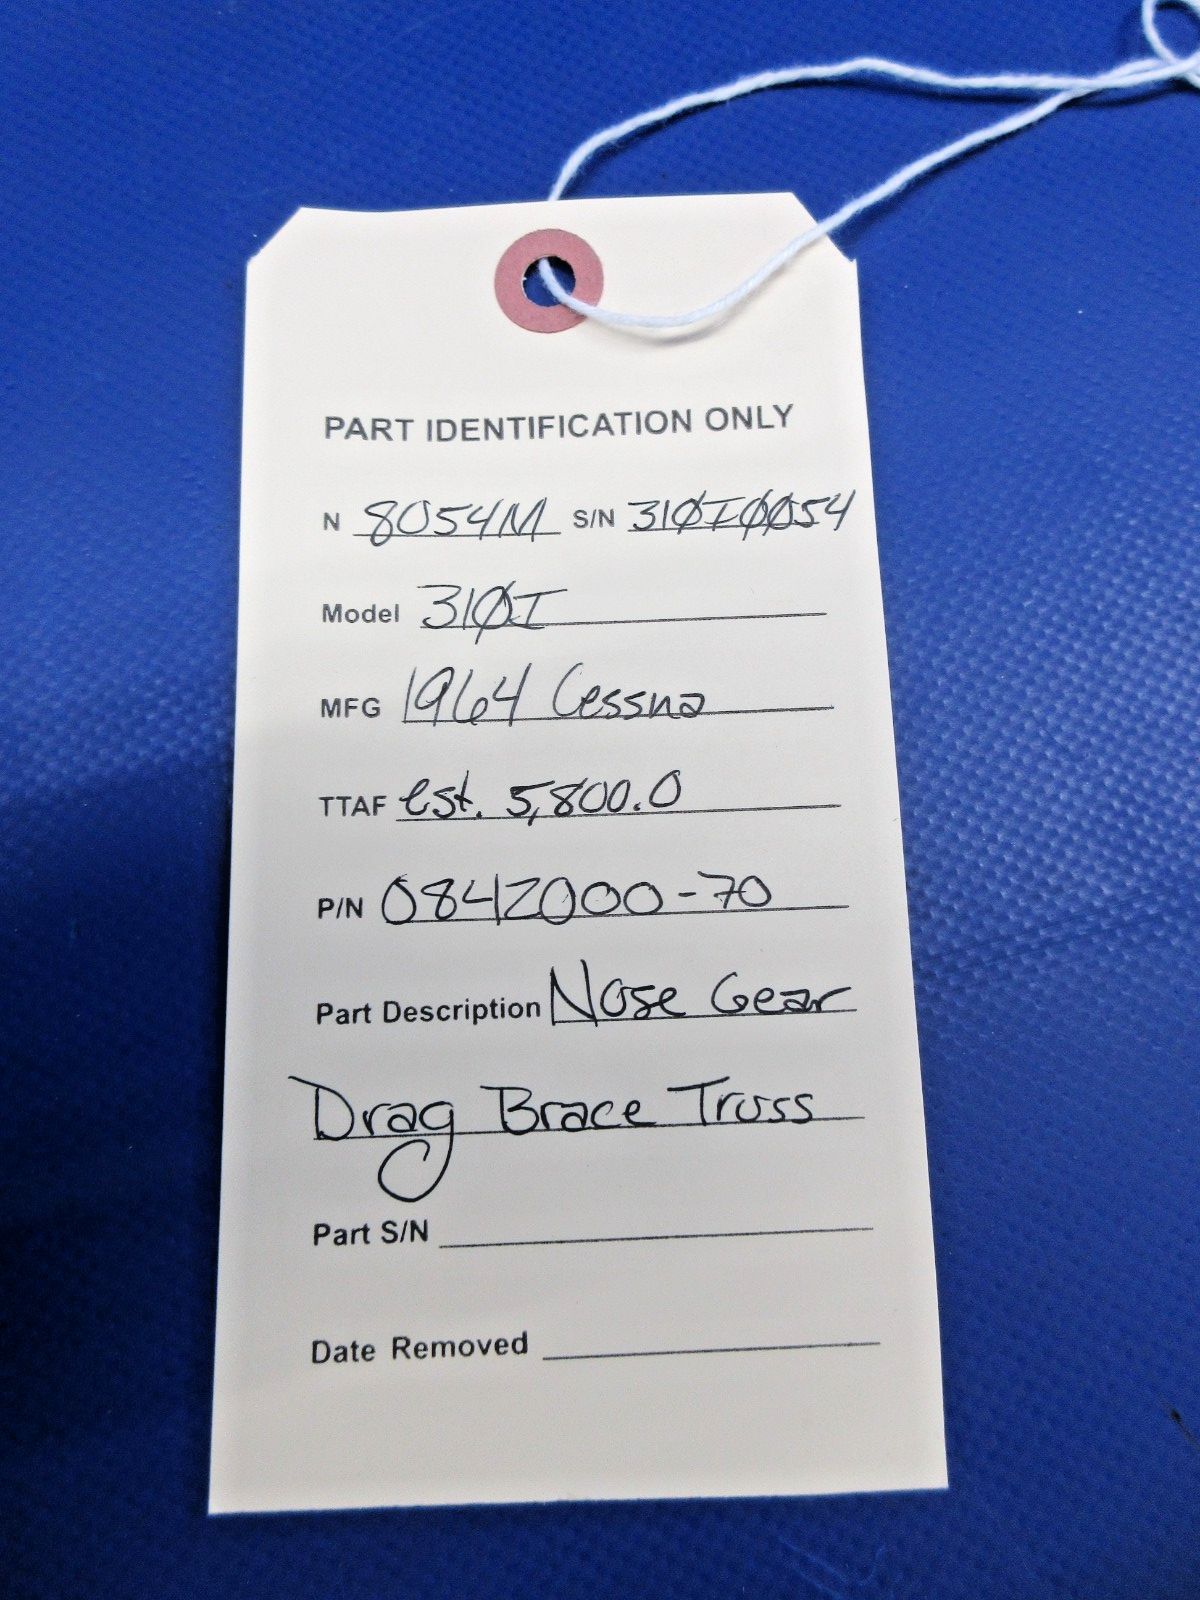 PART IDENTIFICATION ONLY
N 8054M S/N 310I0054
Model 310I
MFG 1964 Cessna
TTAF est. 5,800.0
P/N 0842000-70
Part Description Nose Gear
Drag Brace Truss
Part S/N
Date Removed